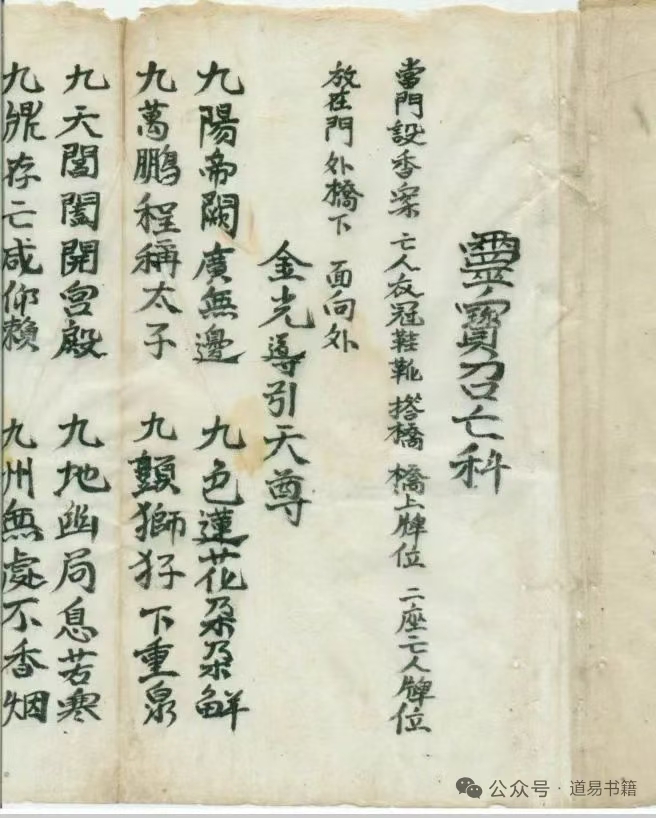 靈寶召亡科
當門設香案 亡人衣冠鞋靴 搭橋 橋上牌位 二座亡人牌位
放在門外橋下 面向外
金光導引天尊
九陽帝闕廣無邊 九色蓮花朵朵鮮
九萬鵬程稱太子 九頭獅子下重泉
九天閶闔開宮殿 九地幽局息苦寒
九鼎存亡咸仰賴 九州無處不香烟
公众号·道易书籍